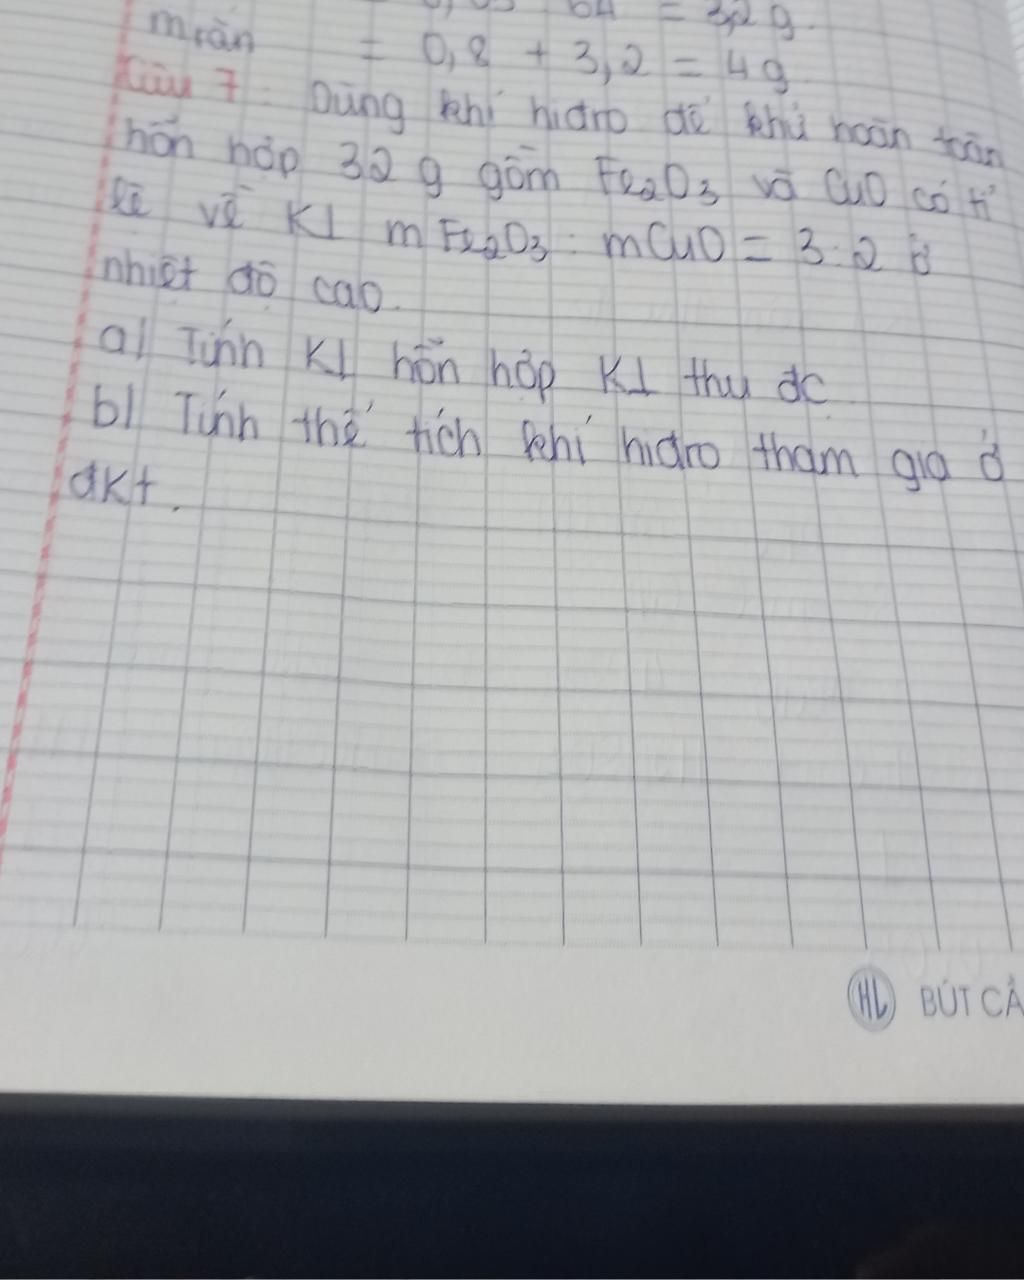 64 = 3,2 g.
mrắn = 0,8 + 3,2 = 4g
Câu 7: Dùng khí hidro để khử hoàn toàn
hỗn hợp 32 g gồm Fe2O3 và CuO có tỉ
lệ về KL mFe2O3 : mCuO = 3:2 ở
nhiệt độ cao.
a/ Tính KL hỗn hợp KL thu đc
b/ Tính thể tích khí hidro tham gia ở
đkt.
HL BÚT CẢ